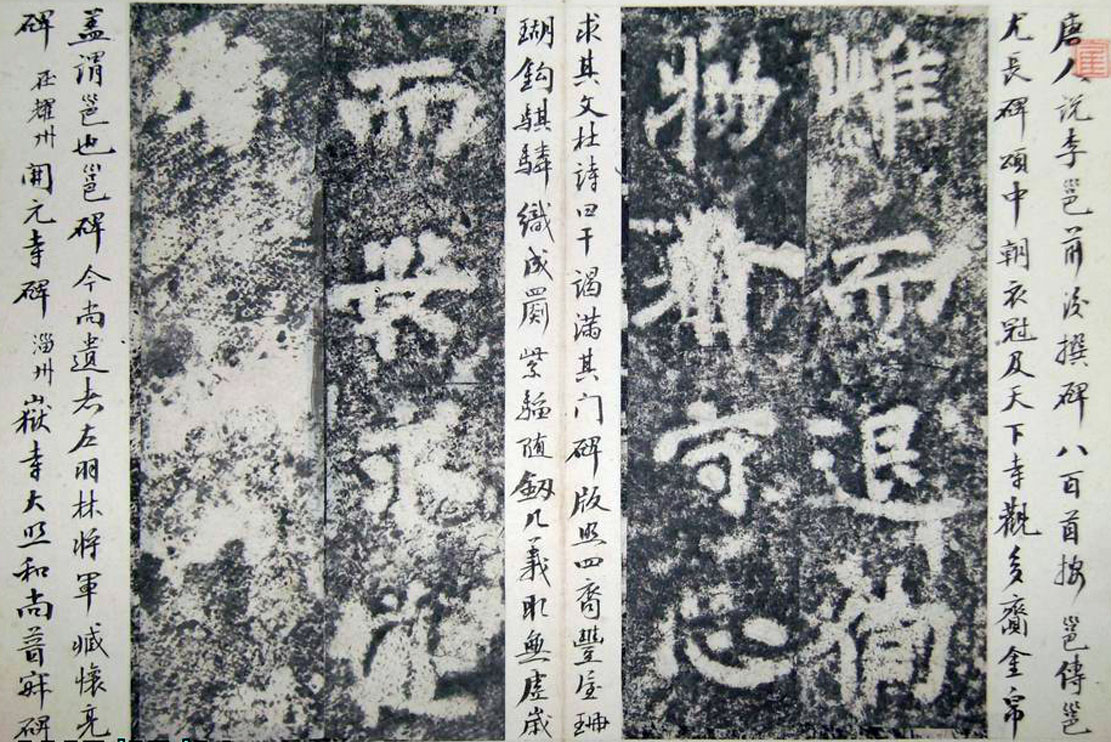 唐人說李邕前後撰碑八百首按邕傳邕
尤長碑頌中朝衣冠及天下寺觀多齎金帛
而退
物守心
求其文杜詩曰干謁滿其门碑版照四裔豐屋珊
瑚鈎騏驎織成罽紫騮隨劔几義取無虛歲
而
蓋謂邕也邕碑今尚遺者左羽林將軍臧懷亮
碑在耀州開元寺碑淄州嶽寺大照和尚普寂碑